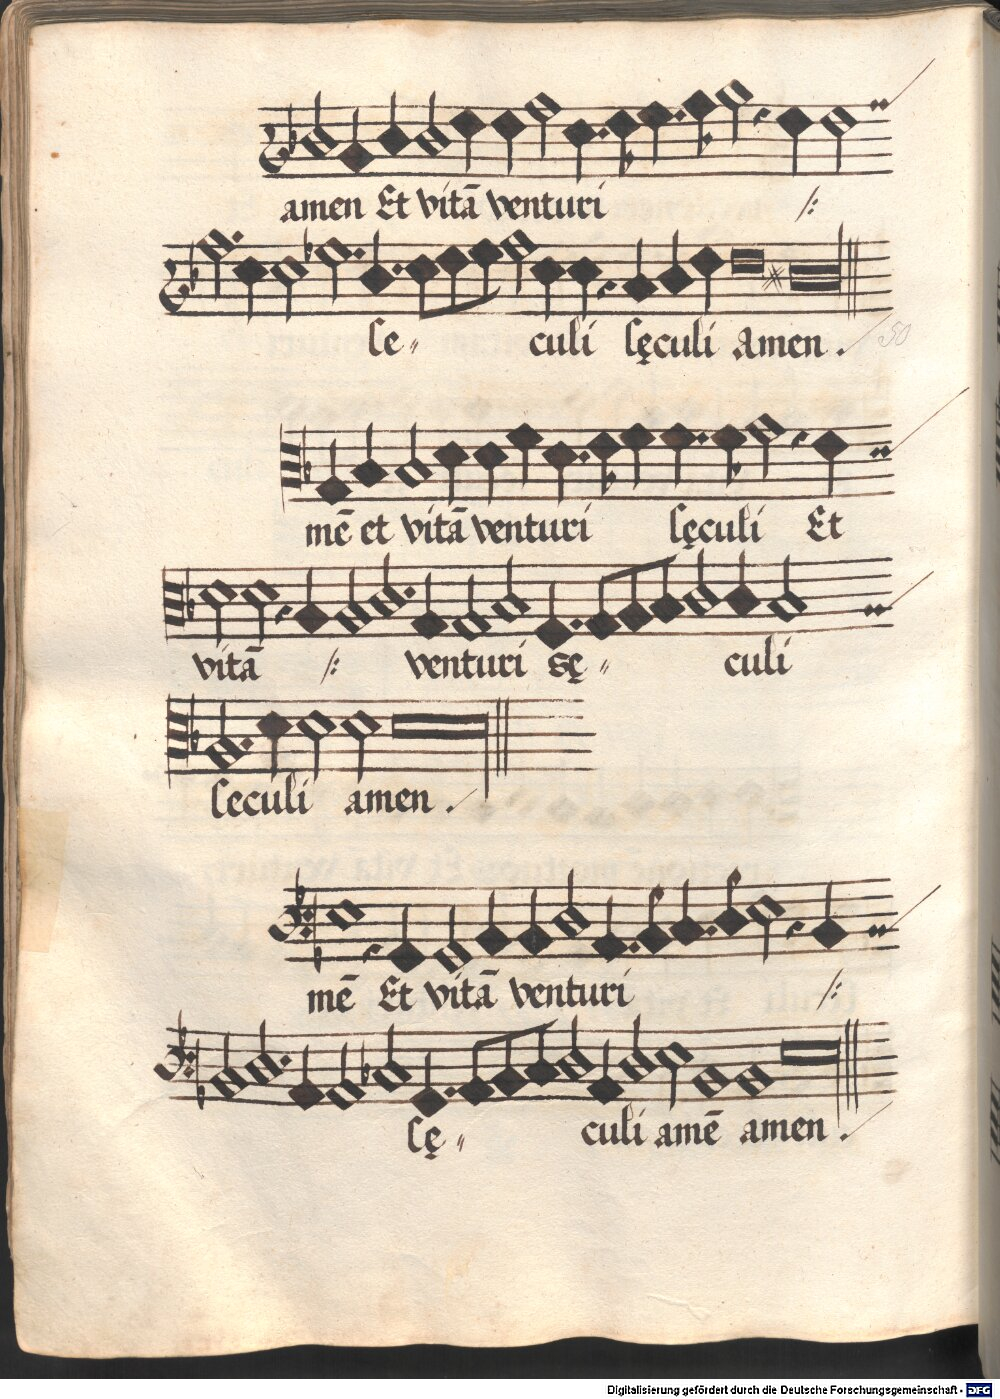 amen Et vitā venturi /:
se〃 culi sęculi Amen .
50
mē et vitā venturi sęculi Et
vitā /: venturi Sę〃 culi
seculi amen .
mē Et vitā venturi /:
sę〃 culi amē amen .
Digitalisierung gefördert durch die Deutsche Forschungsgemeinschaft - DFG